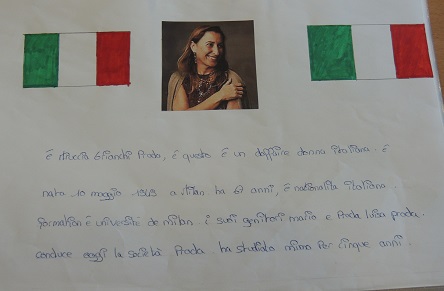 è Miuccia Bianchi Prada, è questa è un daffaire donna italiana. è
nata 10 maggio 1949 a Milan. ha 67 anni, è nationalita italiana.
formation è université de milan. i suoi genitori mario e Prada luisa prada.
conduce oggi la società Prada. ha studiato mimo per cinque anni.